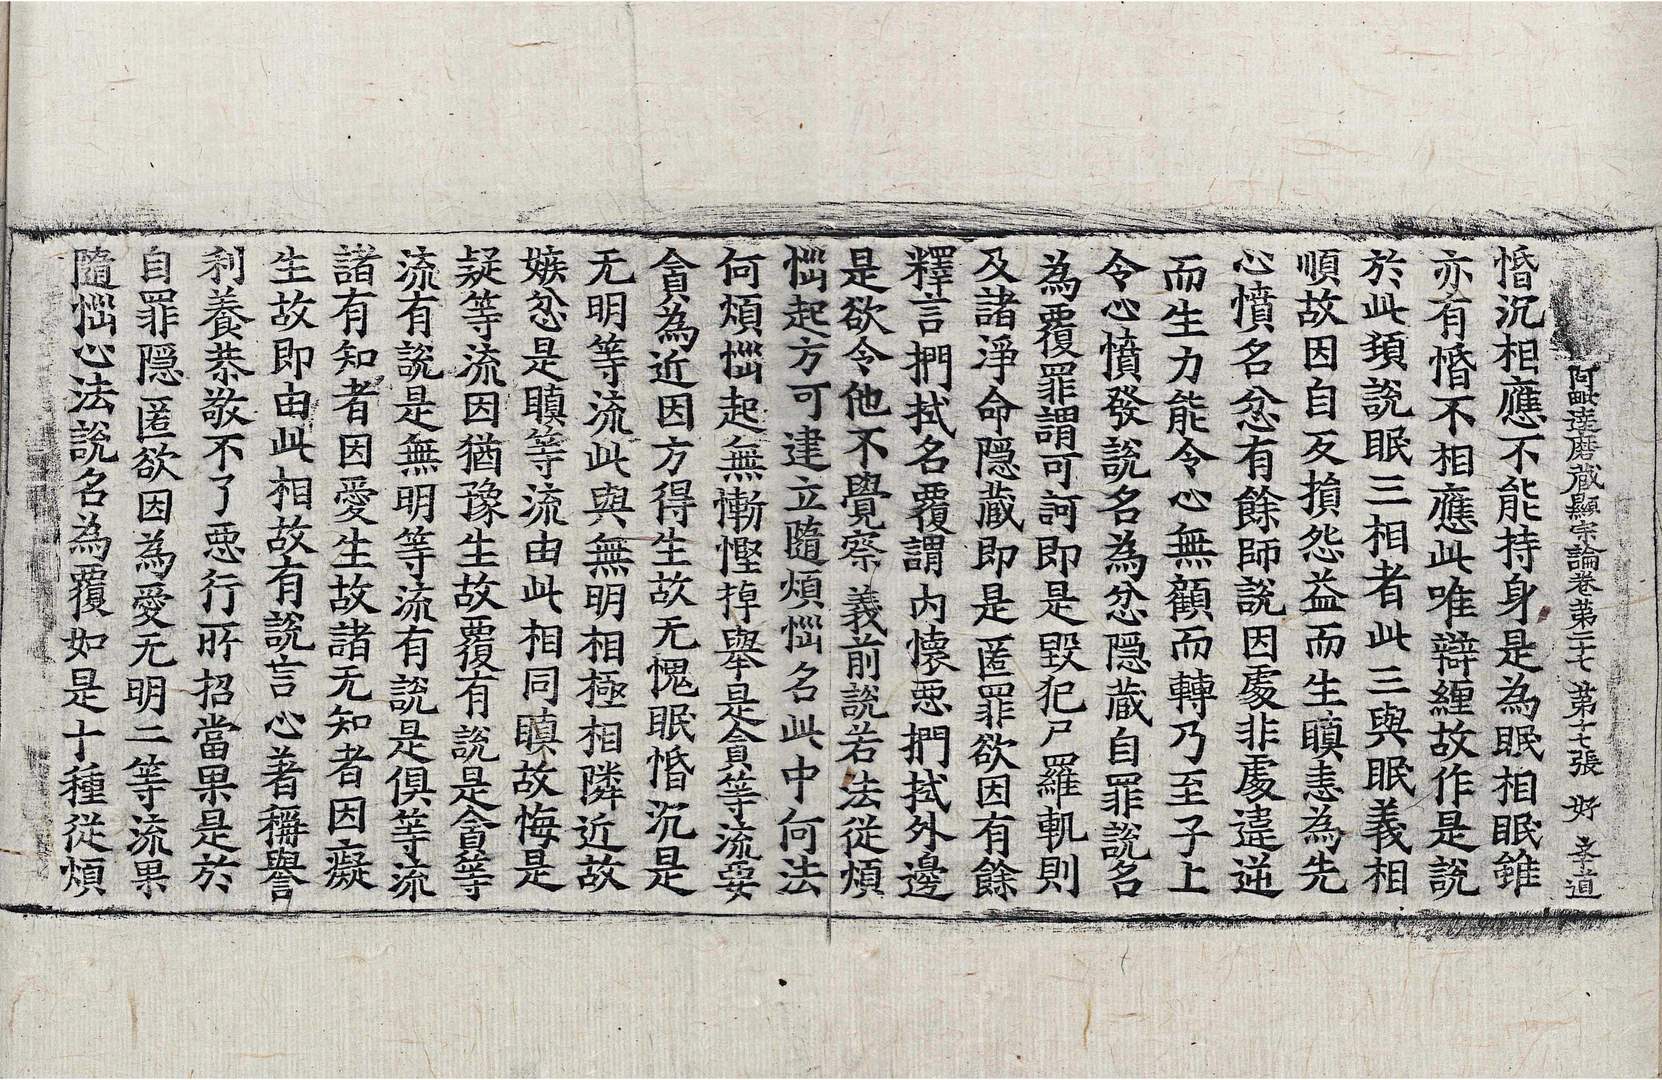 阿毗達磨藏顯宗論卷第二十七 第十七張 好 孝道
惛沉相應不能持身是為眠相眠雖
亦有惛不相應此唯辯纏故作是說
於此頞說眠三相者此三與眠義相
順故因自友損怨益而生瞋恚為先
心憤名忿有餘師說因處非處違逆
而生力能令心無顧而轉乃至子上
令心憤發說名為忿隱藏自罪說名
為覆罪謂可訶即是毀犯尸羅軌則
及諸淨命隱藏即是匿罪欲因有餘
釋言捫拭名覆謂內懷惡捫拭外邊
是欲令他不覺察義前說若法從煩
惱起方可建立隨煩惱名此中何法
何煩惱起無慚慳掉舉是貪等流要
貪為近因方得生故无愧眠惛沉是
无明等流此與無明相極相隣近故
嫉忿是瞋等流由此相同瞋故悔是
疑等流因猶豫生故覆有說是貪等
流有說是無明等流有說是俱等流
諸有知者因愛生故諸无知者因癡
生故即由此相故有說言心著稱譽
利養恭敬不了惡行所招當果是於
自罪隱匿欲因為愛无明二等流果
隨惱心法說名為覆如是十種從煩